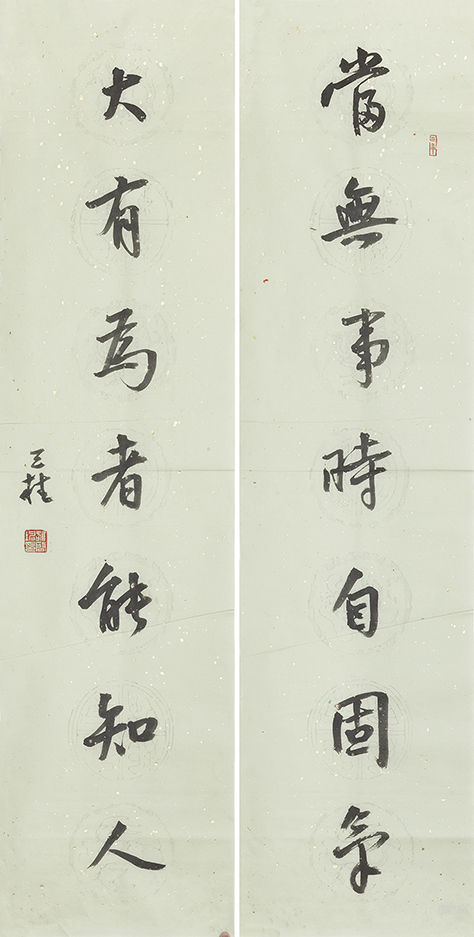 當無事時自固氣
大有為者能知人